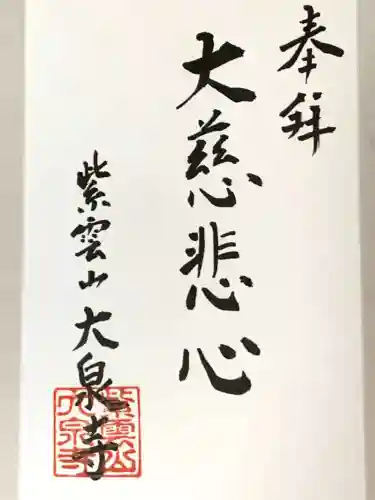 奉拜
大慈悲心
紫雲山大泉寺
紫雲山
大泉寺